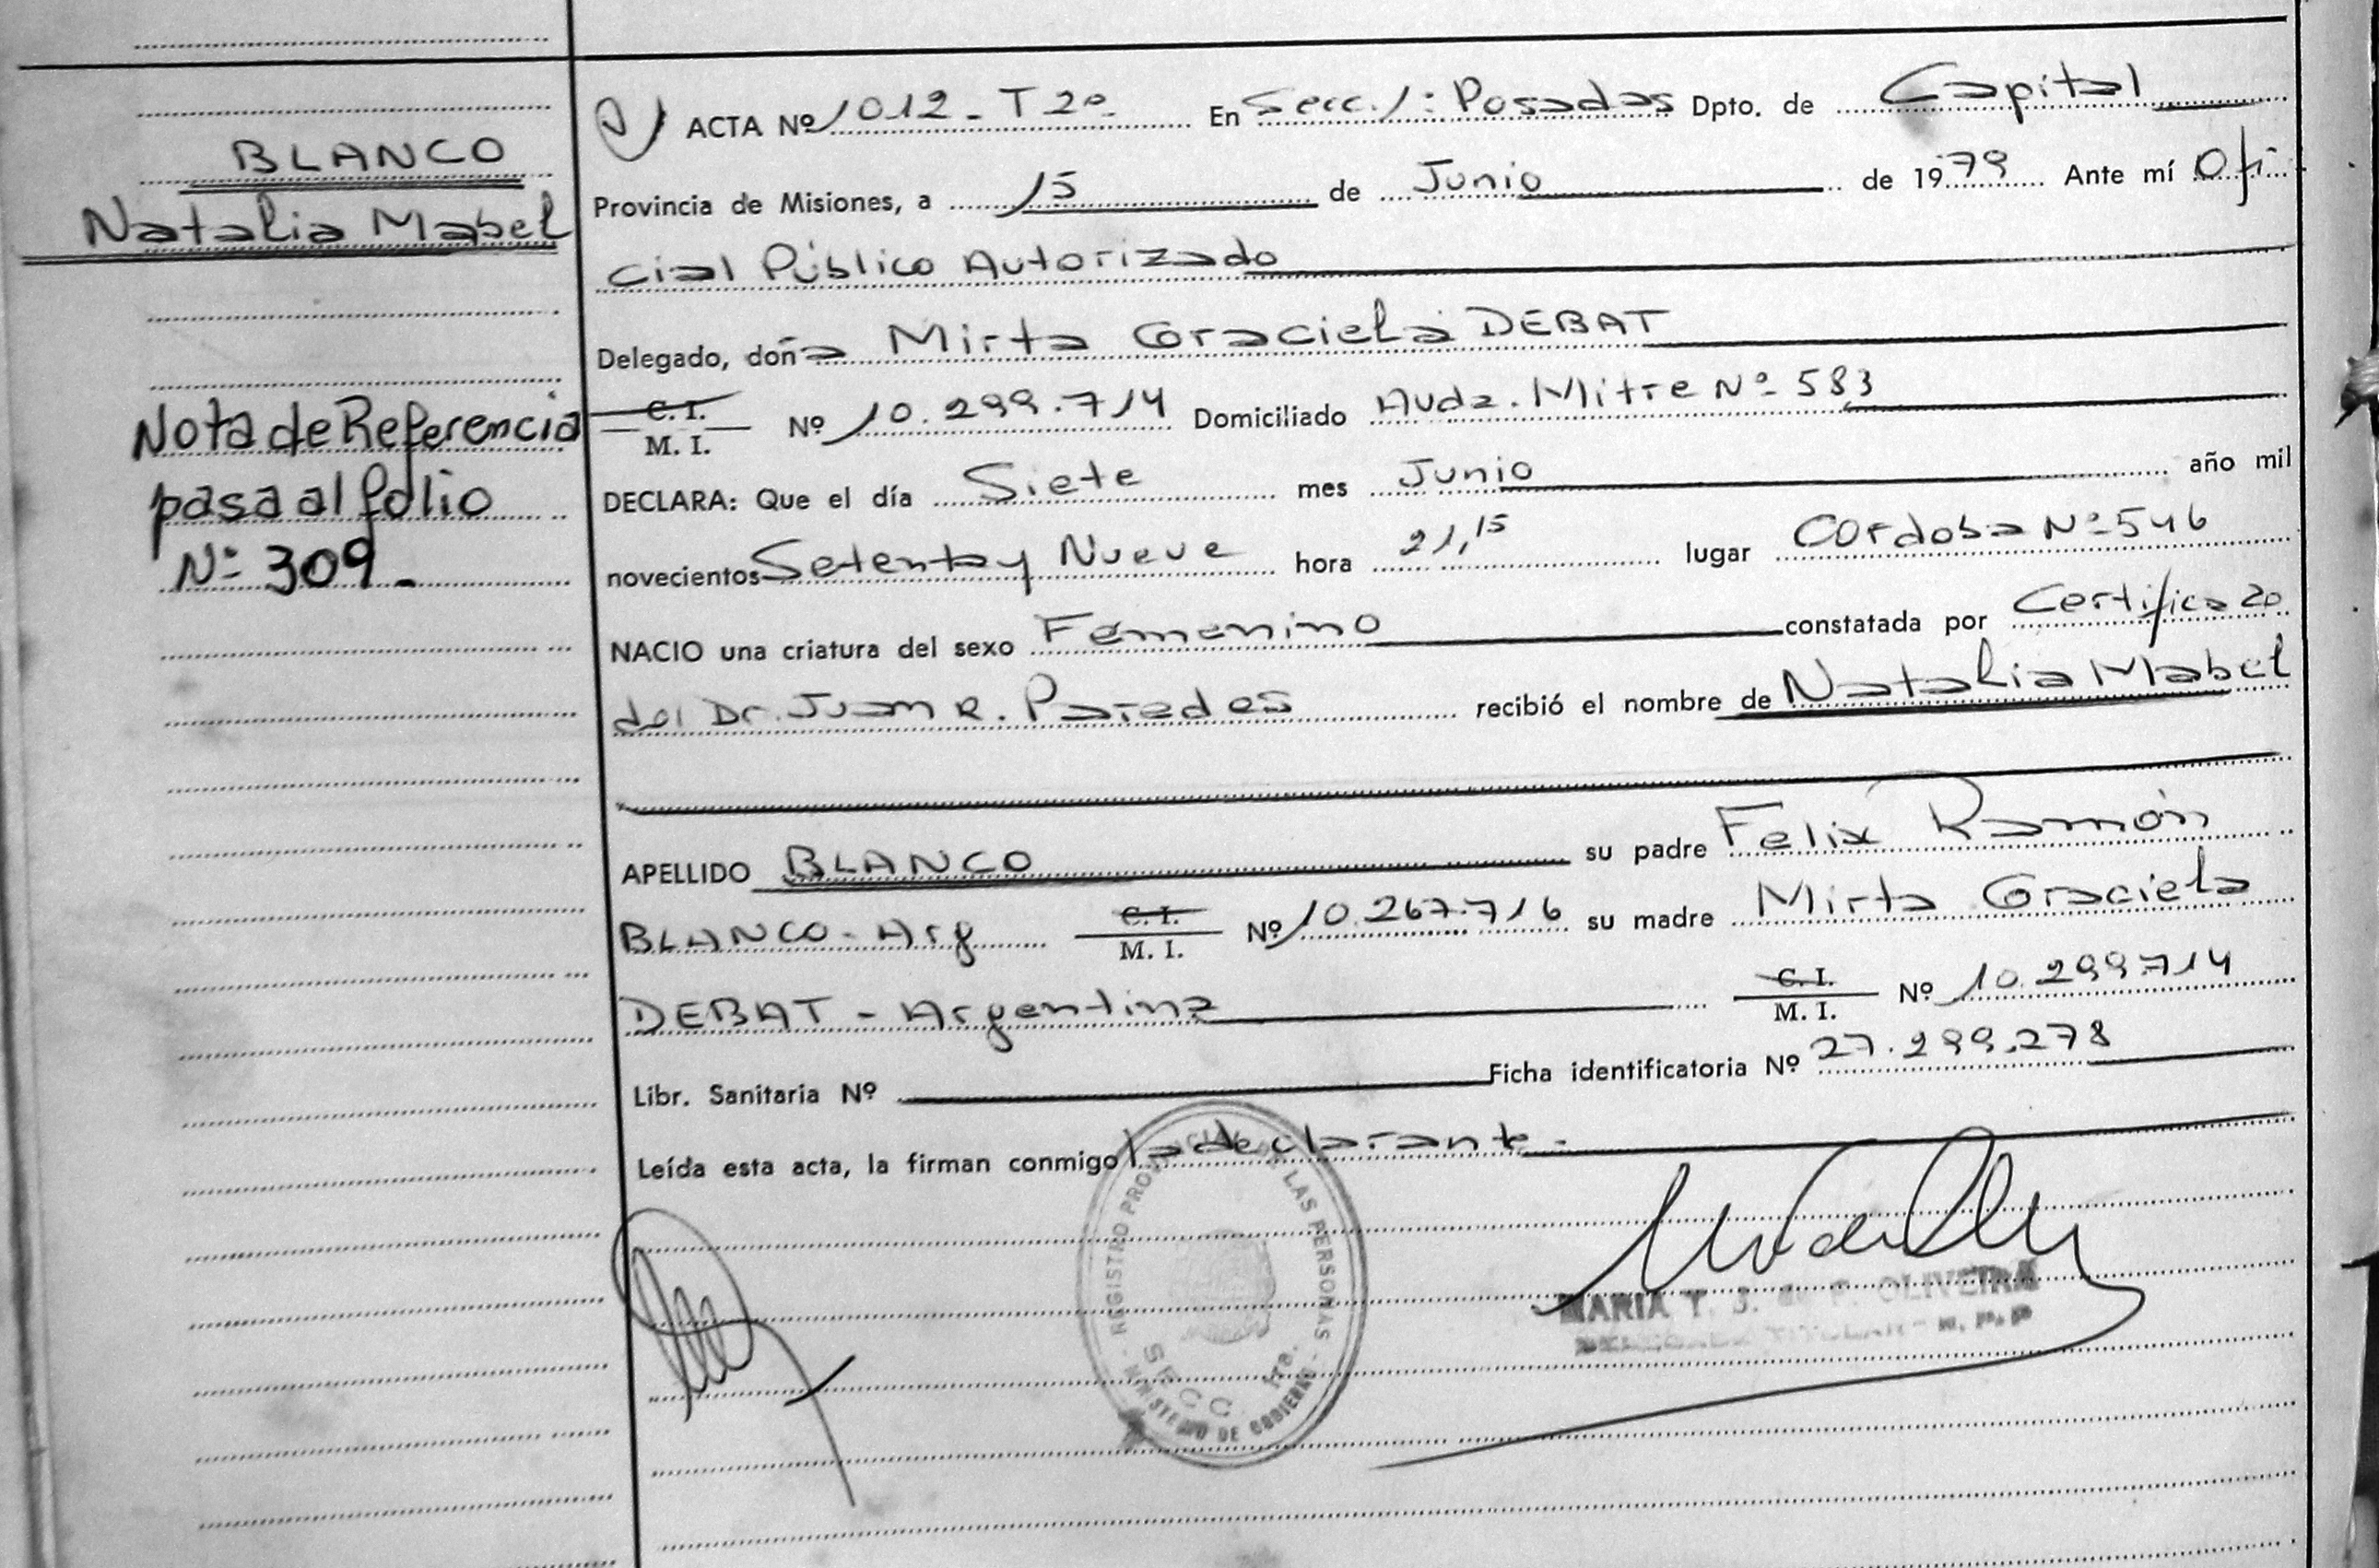 BLANCO
Natalia Mabel
Nota de Referencia
pasa al folio
Nº 309.-
ACTA Nº 1012 - T 2º - En Secc. 1: Posadas Dpto. de Capital
Provincia de Misiones, a 15 de Junio de 1979 Ante mí Ofi
cial Público Autorizado
Delegado, doña Mirta Graciela DEBAT
C. I. / M. I. Nº 10.299.714 Domiciliado Avda. Mitre Nº 583
DECLARA: Que el día Siete mes Junio año mil
novecientos Setenta y Nueve hora 21,15 lugar Córdoba Nº 546
NACIO una criatura del sexo Femenino constatada por Certificado
del Dr. Juan R. Paredes recibió el nombre de Natalia Mabel
APELLIDO BLANCO su padre Felix Ramón
BLANCO - Arg C. I. / M. I. Nº 10.267.716 su madre Mirta Graciela
DEBAT - Argentina C. I. / M. I. Nº 10.299714
Libr. Sanitaria Nº Ficha identificatoria Nº 27.299.278
Leída esta acta, la firman conmigo la declarante.-
REGISTRO PROVINCIAL DE LAS PERSONAS
SECC. 1ra.
MINISTERIO DE GOBIERNO
MARIA T. J. de F. OLIVEIRA